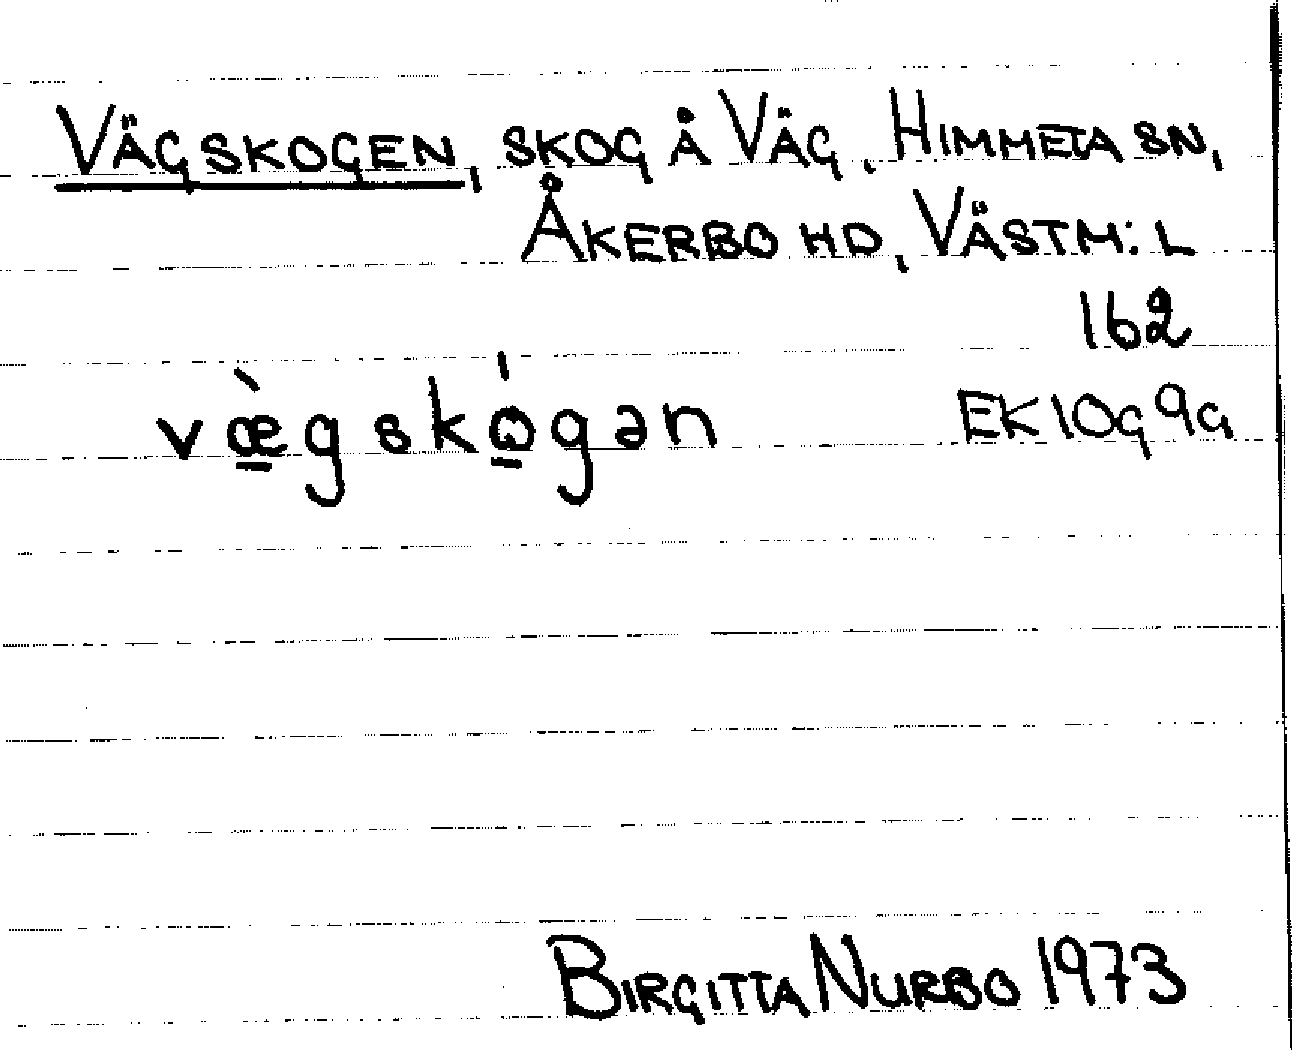 VÄGSKOGEN, SKOG Å VÄG, HIMMETA SN,
ÅKERBO HD, VÄSTM:L
162
væ̠̀gskǫ̠́gən EK10g9g
BIRGITTA NURBO 1973